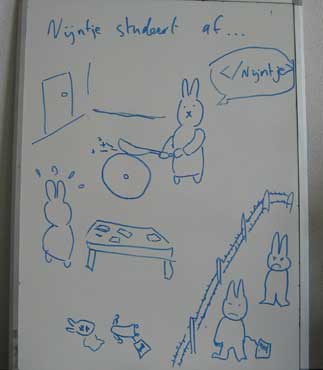 Nijntje studeert af...
</Nijntje>